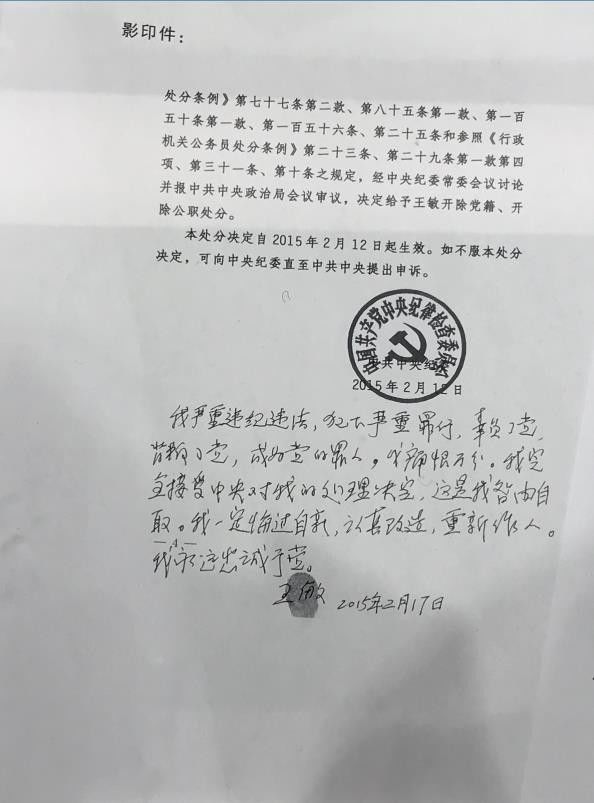 影印件：
处分条例》第七十七条第二款、第八十五条第一款、第一百
五十条第一款、第一百五十六条、第二十五条和参照《行政
机关公务员处分条例》第二十三条、第二十九条第一款第四
项、第三十一条、第十条之规定，经中央纪委常委会议讨论
并报中共中央政治局会议审议，决定给予王敏开除党籍、开
除公职处分。
本处分决定自2015年2月12日起生效。如不服本处分
决定，可向中央纪委直至中共中央提出申诉。
中国共产党中央纪律检查委员会
共中央纪
2015年2月12日
我严重违纪违法，犯下严重罪行，辜负了党，
背叛了党，成为党的罪人。我痛恨万分。我完
全接受中央对我的处理决定，这是我咎由自
取。我一定悔过自新，认真改造，重新作人。
—4—
我永远忠诚于党。
王敏 2015年2月17日